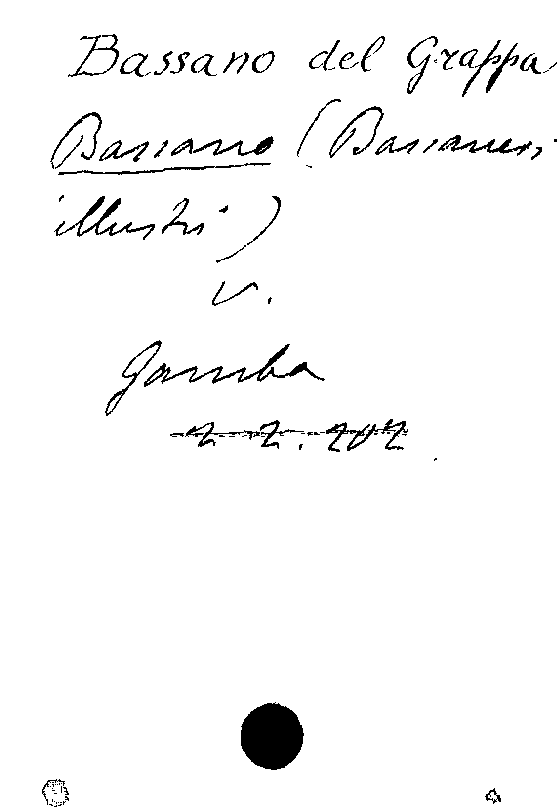 Bassano del Grappa
Bassano (Bassanesi
illustri)
v.
Gamba
2 2. 202